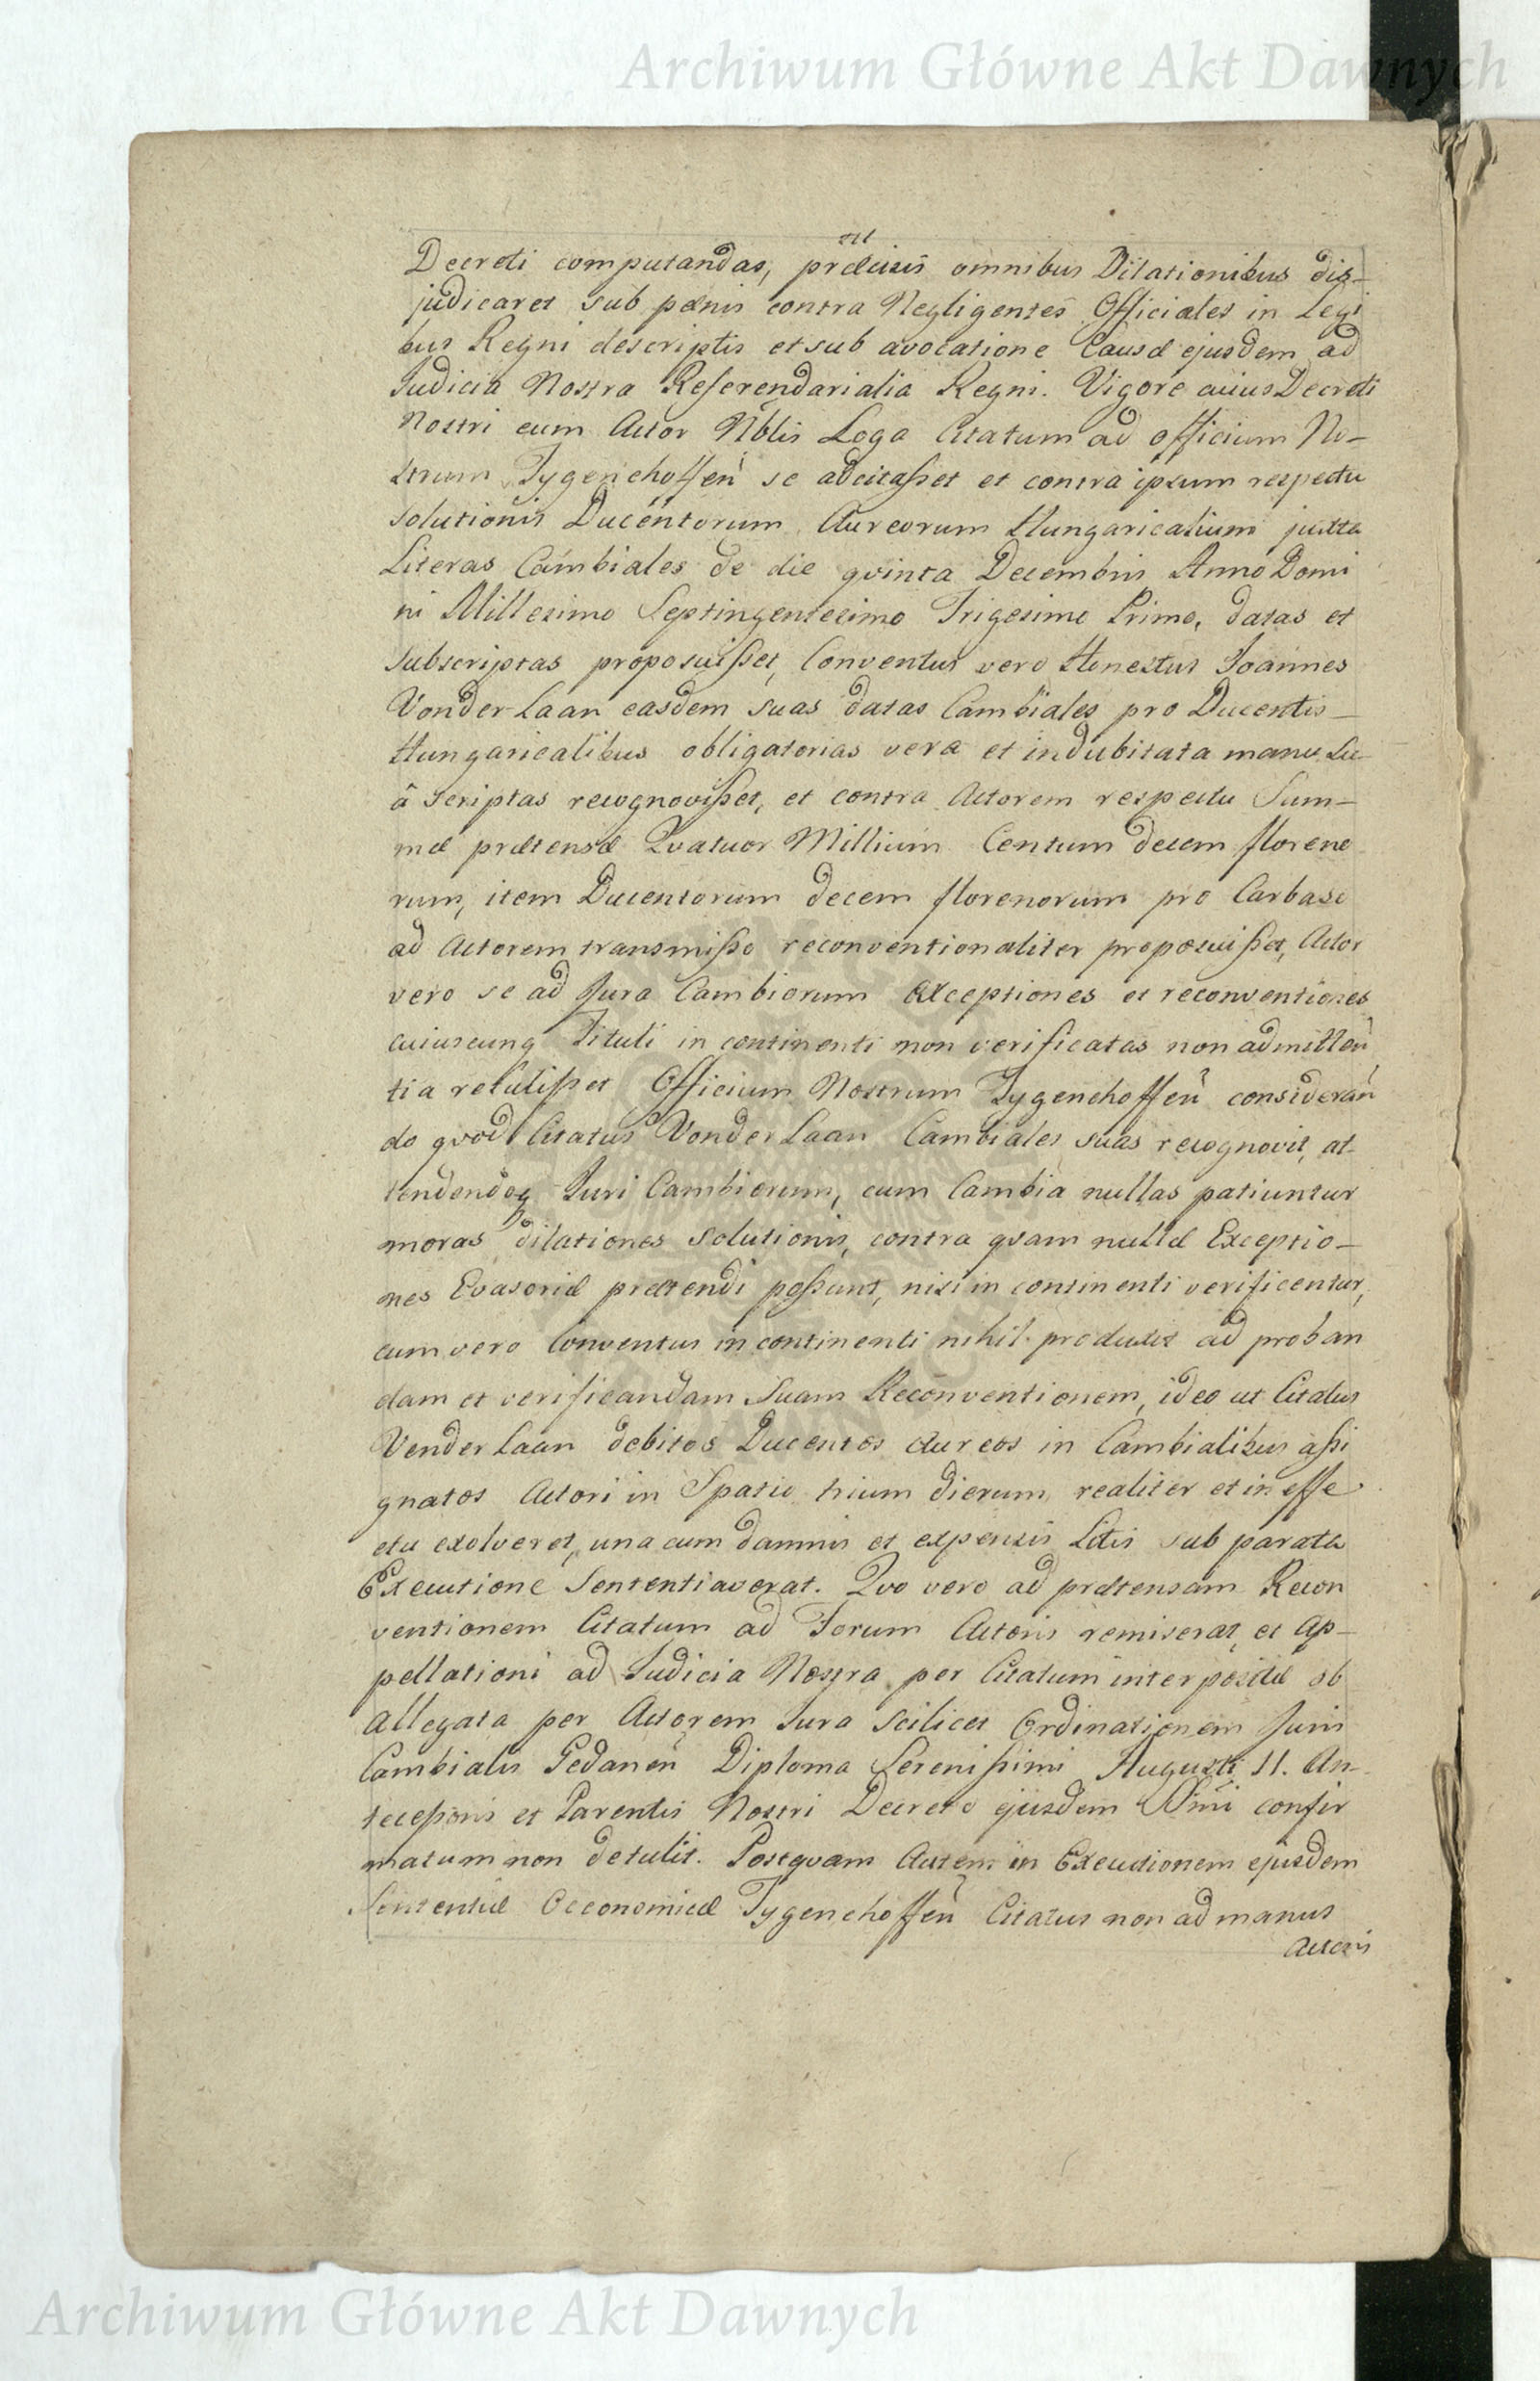 Archiwum Główne Akt Dawnych
Decreti computandas, præcisis omnibus Dilationibus dis-
judicaret sub pœnis contra Negligentes Officiales in Legi
bus Regni descriptis et sub avocatione Causæ ejusdem ad
Judicia Nostra Referendarialia Regni. Vigore cuius Decreti
Nostri cum Actor Nblis Loga Citatum ad officium No-
strum Tygenehoffen se adcitaßet et contra ipsum respectu
solutionis Ducentorum Aureorum Hungaricalium juxta
Literas Cambiales de die qvinta Decembris Anno Domi
ni Millesimo Septingentesimo Trigesimo Primo, datas et
subscriptas proposuißet, Conventus vero Honestus Joannes
Vonder Laan easdem suas datas Cambiales pro Ducentis
Hungaricalibus obligatorias vera et indubitata manu Su-
â scriptas recognovißet, et contra Actorem respectu Sum-
mæ prætensæ Qvatuor Millium Centum decem floreno
rum, item Ducentorum decem florenorum pro Carbaso
ad Actorem transmißo reconventionaliter proposuißet, Actor
vero se ad Jura Cambiorum exceptiones et reconventiones
cuiuscunq Tituli in continenti non verificatas non admitten
tia retulißet Officium Nostrum Tygenehoffen consideran
do qvod Citatus Vonder Laan Cambiales suas recognovit, at-
tendendoq Juri Cambiorum, cum Cambia nullas patiuntur
moras dilationes solutionis, contra qvam nullæ Exceptio-
nes Evasoriæ prætendi poßunt, nisi in continenti verificentur,
cum vero Conventus in continenti nihil produxit ad proban
dam et verificandam Suam Reconventionem, ideo ut Citatus
Vonder Laan debitos Ducentos aureos in Cambialibus aßi
gnatos Actori in Spatio trium dierum realiter et in effe
ctu exolveret, una cum damnis et expensis Litis sub parata
Executione Sententiaverat. Qvo vero ad prætensam Recon
ventionem Citatum ad Forum Actoris remiserat, et Ap-
pellationi ad Judicia Nostra per Citatum interpositæ ob
allegata per Actorem Jura scilicet Ordinationem Juris
Cambialis Gedanen Diploma Serenißimi Augusti II. An-
teceßoris et Parentis Nostri Decreto ejusdem confir
matum non detulit. Postqvam Autem in Executionem ejusdem
Sententiæ Oeconomicæ Tygenehoffen Citatus non ad manus
Actoris
Archiwum Główne Akt Dawnych